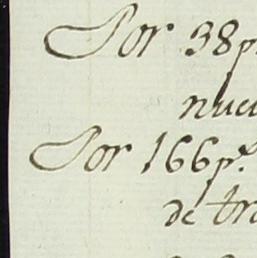 Por 38p
nue
Por 166p.s
de tra